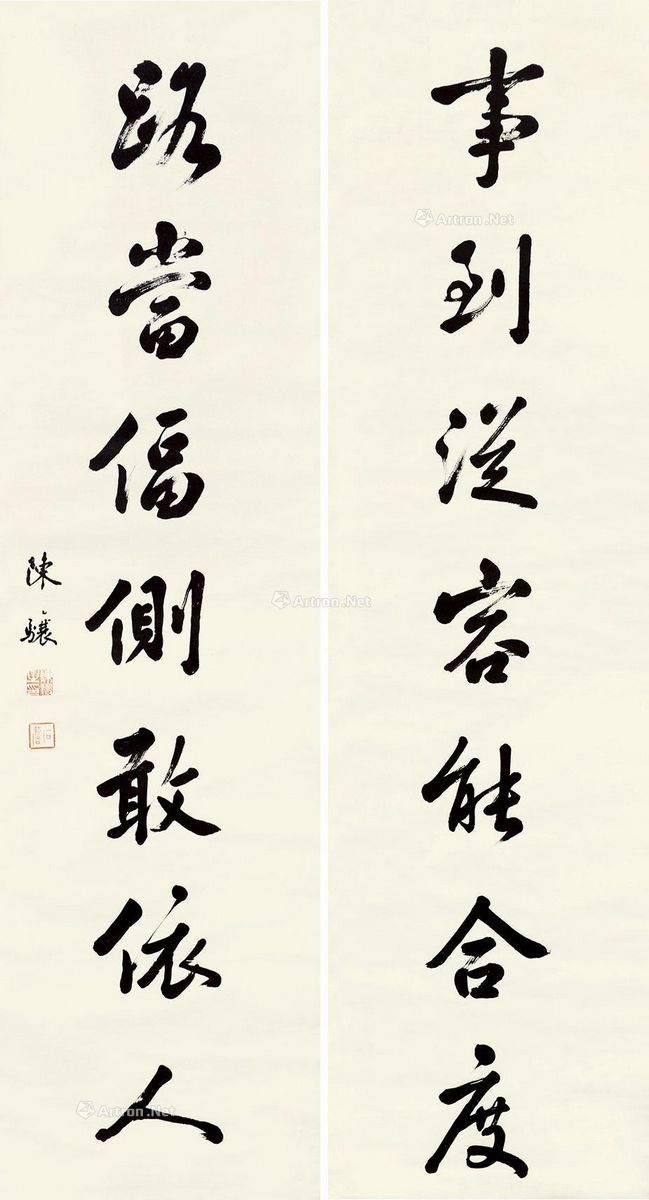 事到從容能合度
路當偪側敢依人
陳驤
Artron.Net
Artron.Net
Artron.Net